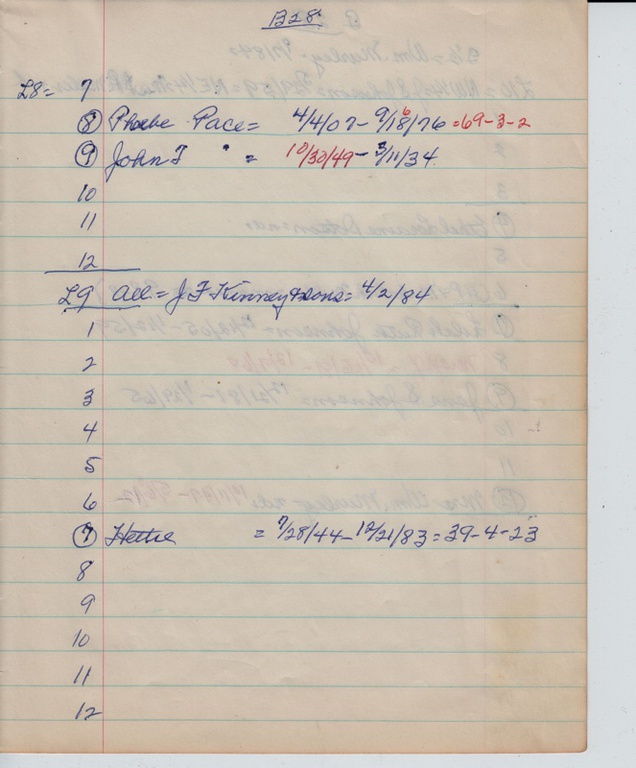 B28
L8 = 7
8 Phoebe Pace = 4/4/07 - 9/18/76 = 69-3-2
9 John T " = 10/30/49 - 3/11/34
10
11
12
L9 All = J F Kinney & Sons = 4/2/84
1
2
3
4
5
6
7 Hettie = 7/28/44 - 12/21/83 = 39-4-23
8
9
10
11
12